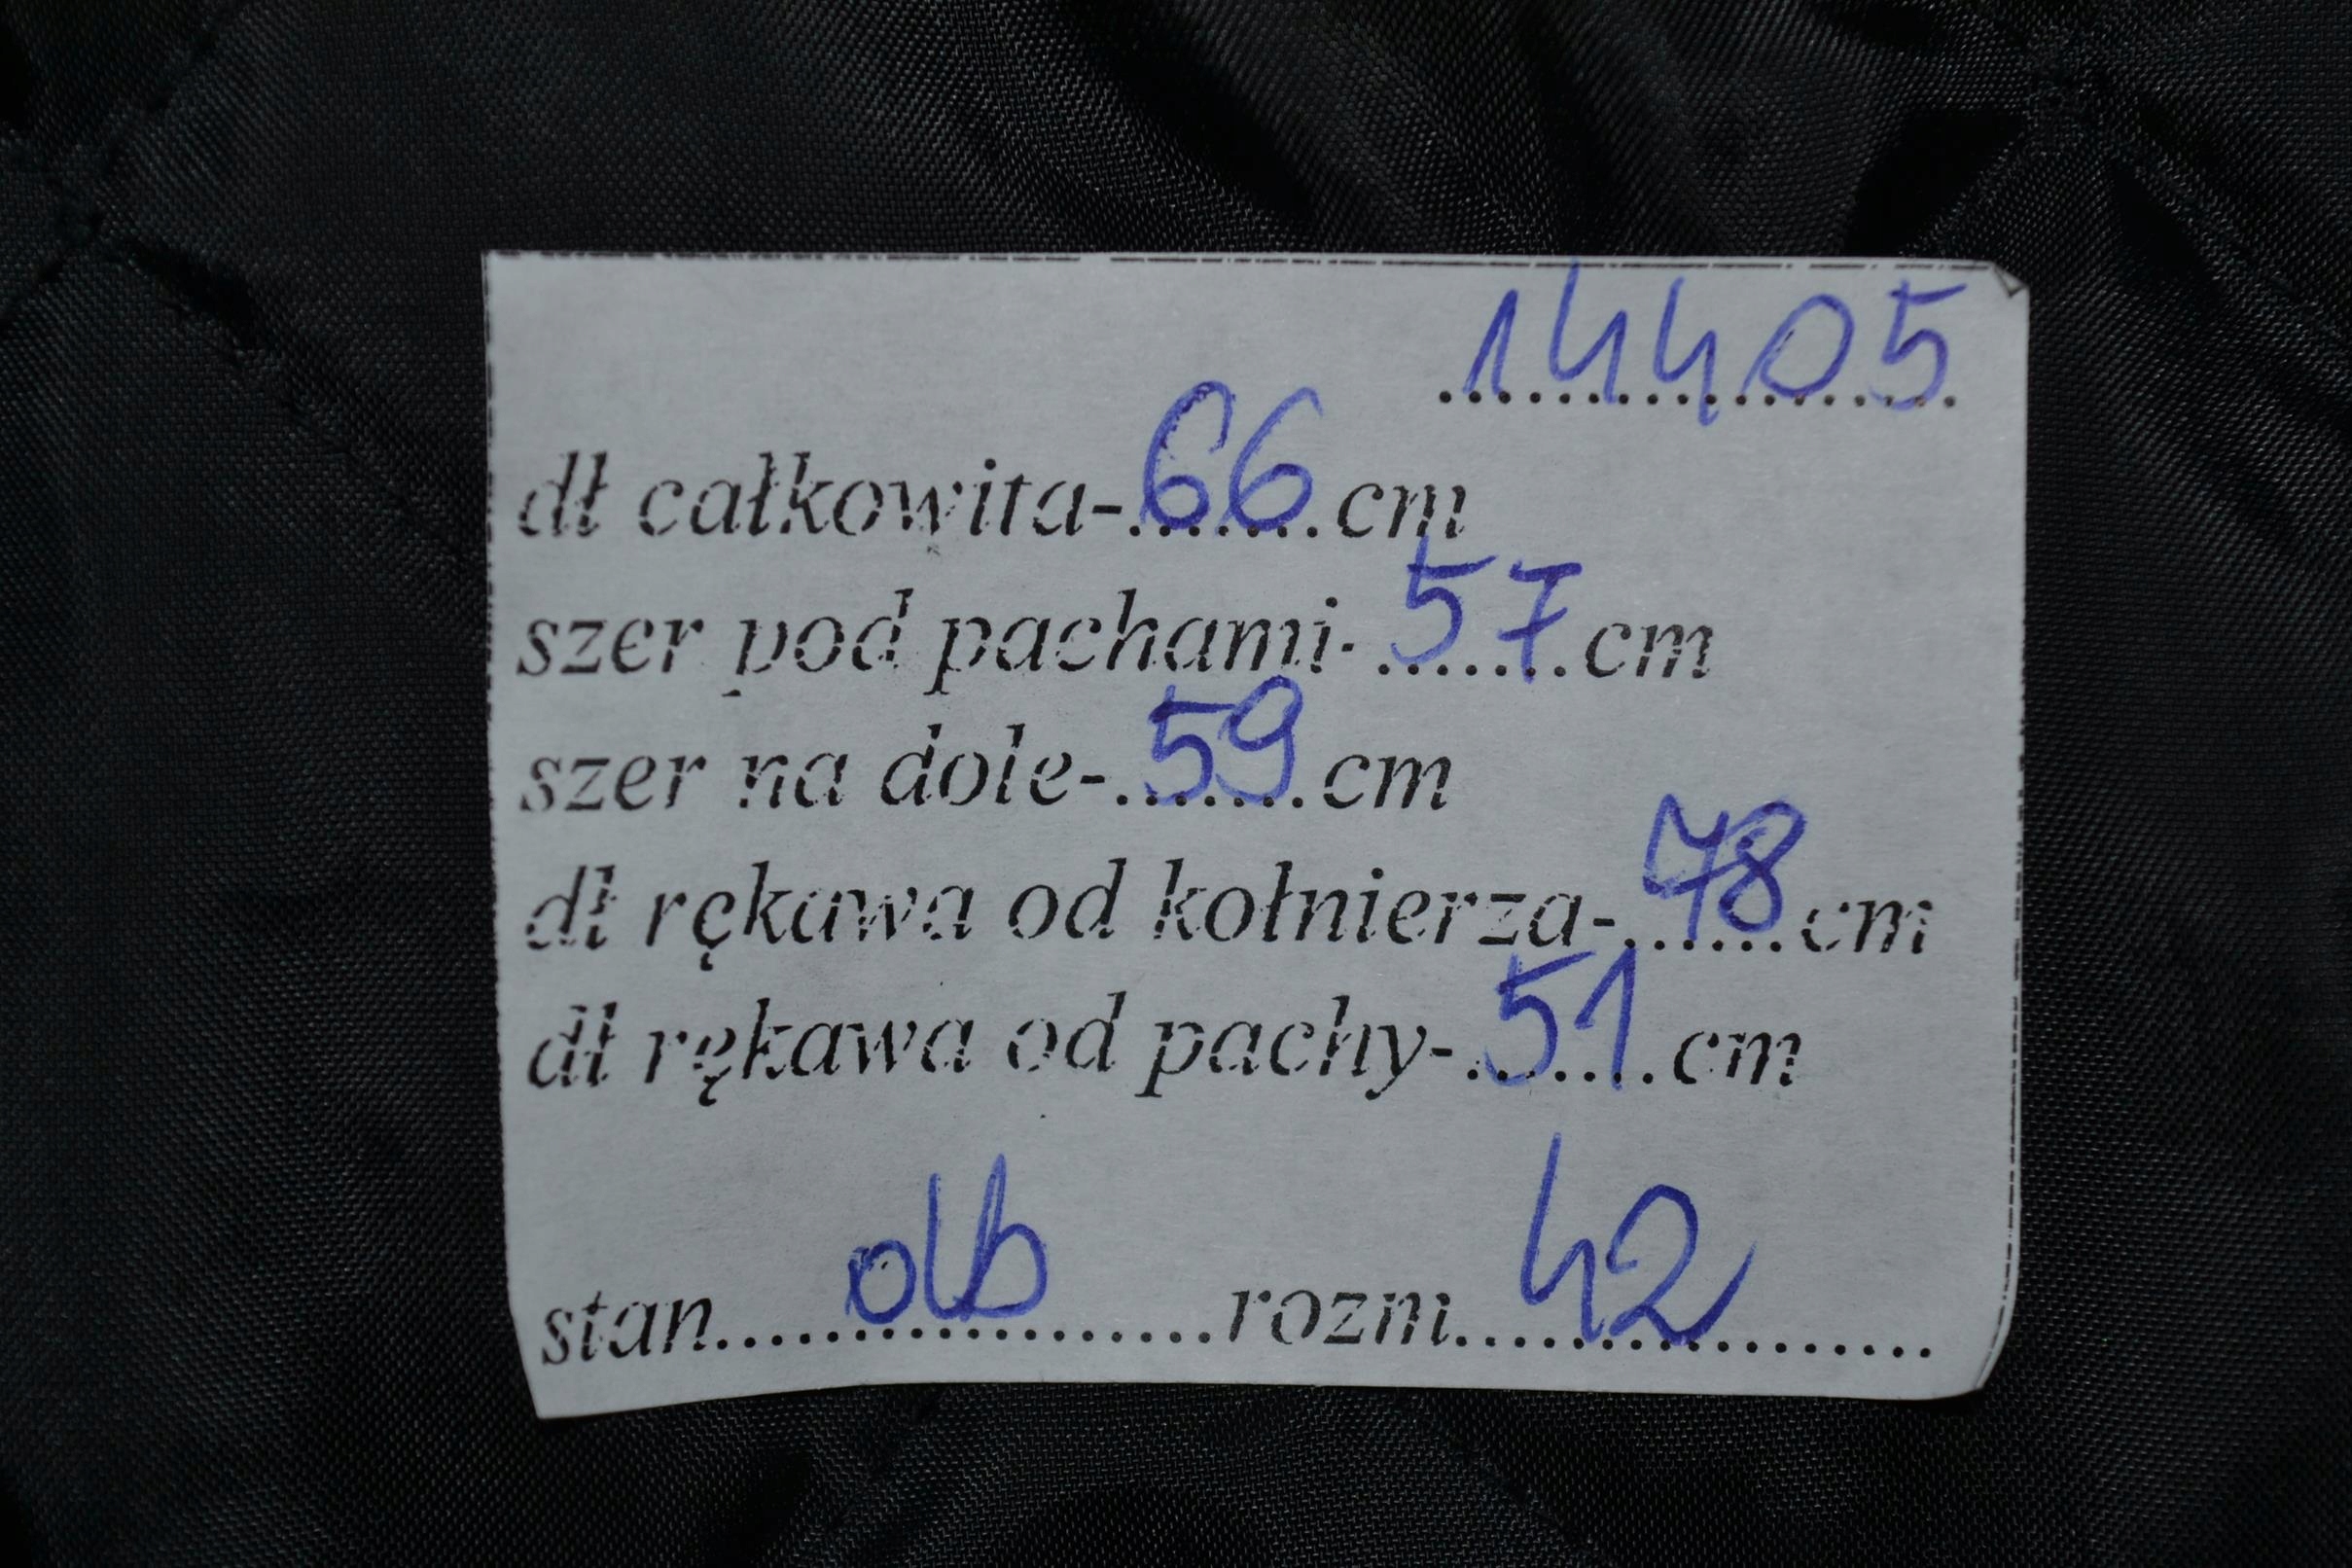 14405
dł całkowita-66 cm
szer pod pachami- 57 cm
szer na dole-59 cm
dł rękawa od kołnierza-78 cm
dł rękawa od pachy-51 cm
stan db rozm 42